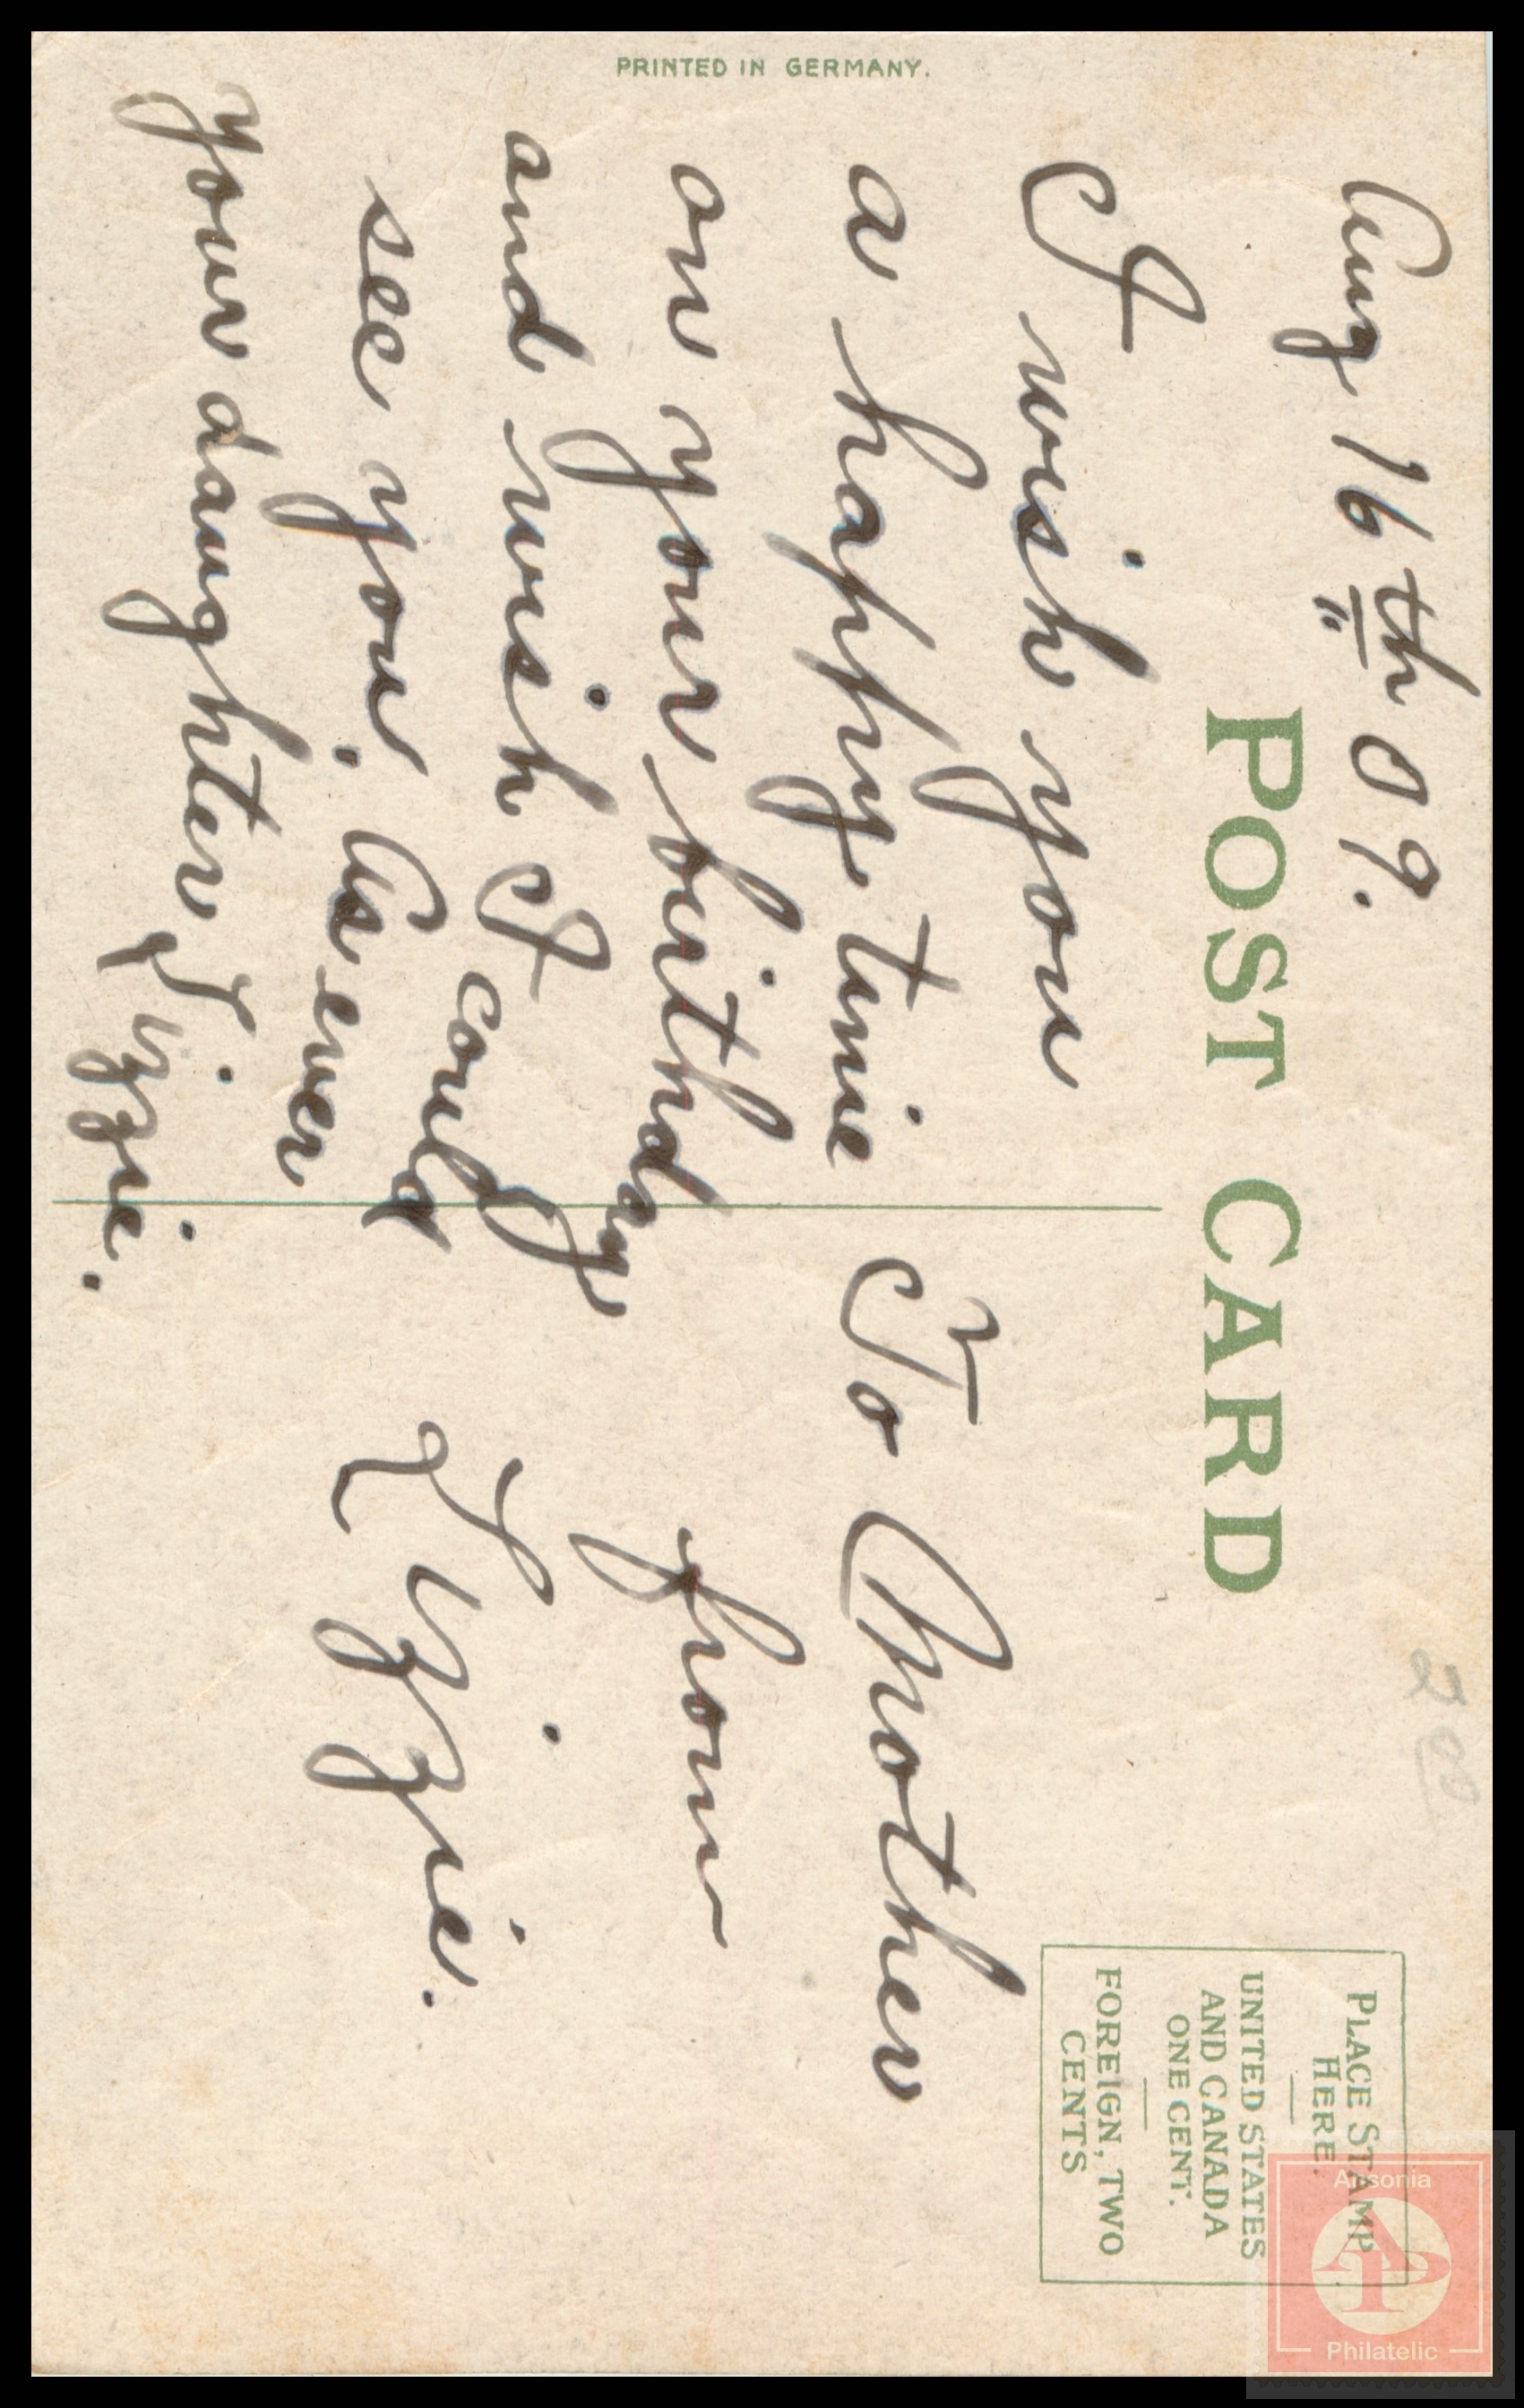 Aug 16th 09.
POST CARD
200
PLACE STAMP
HERE.
UNITED STATES
AND CANADA
ONE CENT.
FOREIGN, TWO
CENTS
I wish you
a happy time
on your birthday
and wish I could
see you. As ever
your daughter Lizzie.
To Mother
from
Lizzie.
PRINTED IN GERMANY.
Ansonia
AP
Philatelic